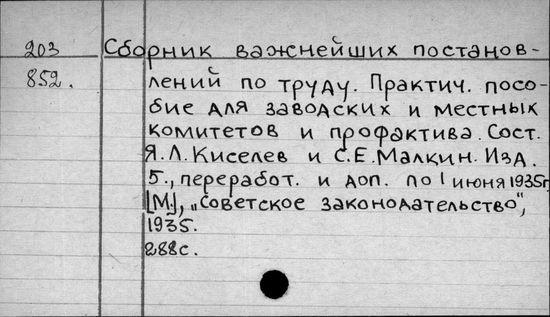 203 Сборник важнейших постанов-
852. лений по труду. Практич. посо-
бие для заводских и местных
комитетов и профактива. Сост.
Я.Л.Киселев и С.Е.Малкин. Изд.
5., переработ. и доп. по 1 июня 1935г.
[М.], „Советское законодательство",
1935.
288с.